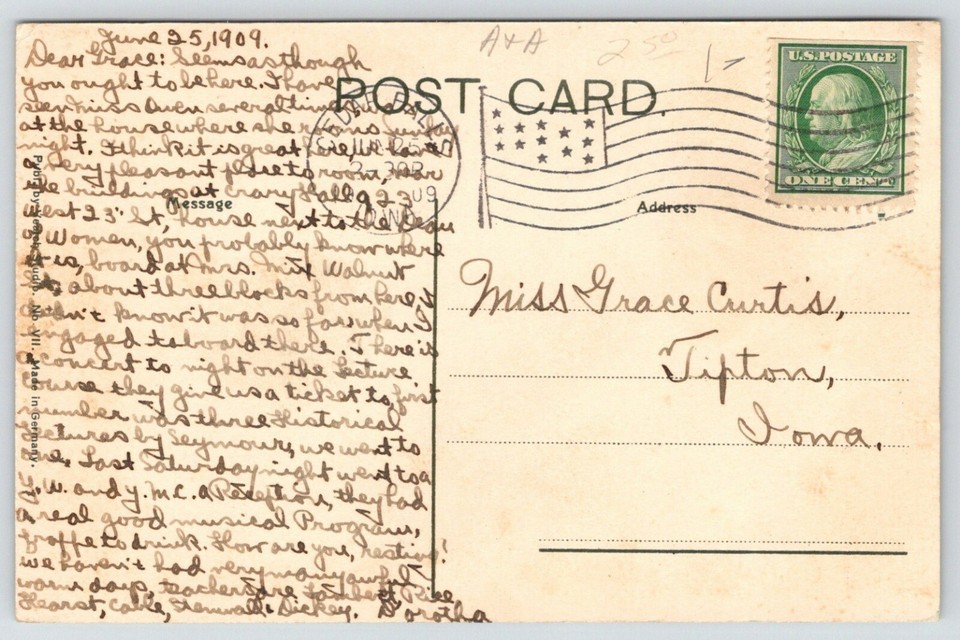 June 25, 1909.
Dear Grace: Seems as though
you ought to be here. I have
seen Miss Owen several times
at the house where she rooms Sunday
night. I think it is great here, we have
a very pleasant place to room, near
the buildings at Crary Hall 923
West 23" St, house next to the Dean
of Women, you probably know where
it is, board at Mrs. Mix Walnut
St, about three blocks from here. I
didn't know it was so far, when I
engaged to board there. There is
a concert to night on the Lecture
course they give us a ticket to, first
number was three Historical
Lectures by Seymour, we went to
one. Last Saturday night went to a
Y.W. and Y.M.C.A Reception, they had
a real good musical Program,
fraffe to drink. How are you, resting?
we haven't had very many awful
warm days, teachers are Lambert, Rice
Hearst, Cable, Dickey. Dorotha
POST CARD.
Message
Address
No. VII. Made in Germany.
A+A
250
1-
CEDAR FALLS
JUN 25
09
U.S. POSTAGE
ONE CENT
Miss Grace Curtis,
Tipton,
Iowa.